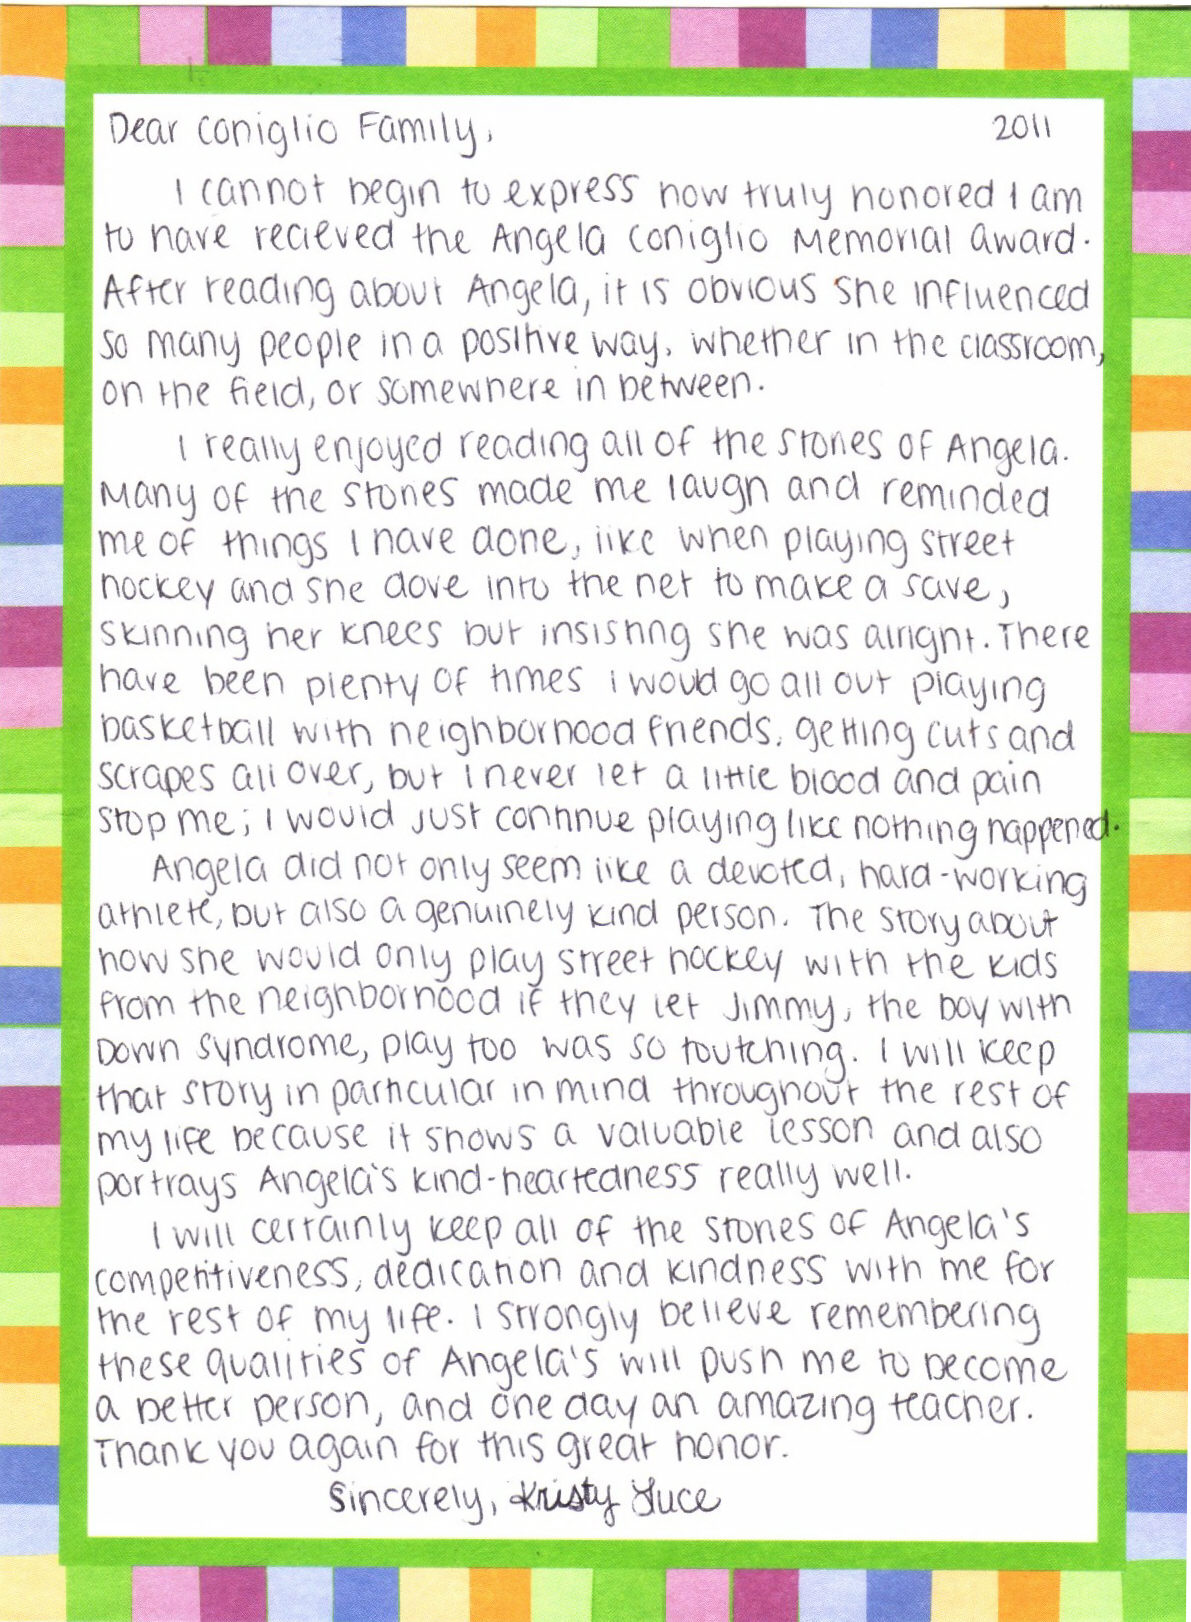 Dear Coniglio Family, 2011
I cannot begin to express how truly honored I am
to have recieved the Angela Coniglio Memorial award.
After reading about Angela, it is obvious she influenced
so many people in a positive way, whether in the classroom,
on the field, or somewhere in between.
I really enjoyed reading all of the stories of Angela.
Many of the stories made me laugh and reminded
me of things I have done, like when playing street
hockey and she dove into the net to make a save,
skinning her knees but insisting she was alright. There
have been plenty of times i would go all out playing
basketball with neighborhood friends, getting cuts and
scrapes all over, but I never let a little blood and pain
stop me; I would just continue playing like nothing happened.
Angela did not only seem like a devoted, hard-working
athlete, but also a genuinely kind person. The story about
how she would only play street hockey with the kids
from the neighborhood if they let Jimmy, the boy with
Down syndrome, play too was so toutching. I will keep
that story in particular in mind throughout the rest of
my life because it shows a valuable lesson and also
portrays Angela's kind-heartedness really well.
I will certainly keep all of the stories of Angela's
competitiveness, dedication and kindness with me for
the rest of my life. I strongly believe remembering
these qualities of Angela's will push me to become
a better person, and one day an amazing teacher.
Thank you again for this great honor.
Sincerely, Kristy Luce